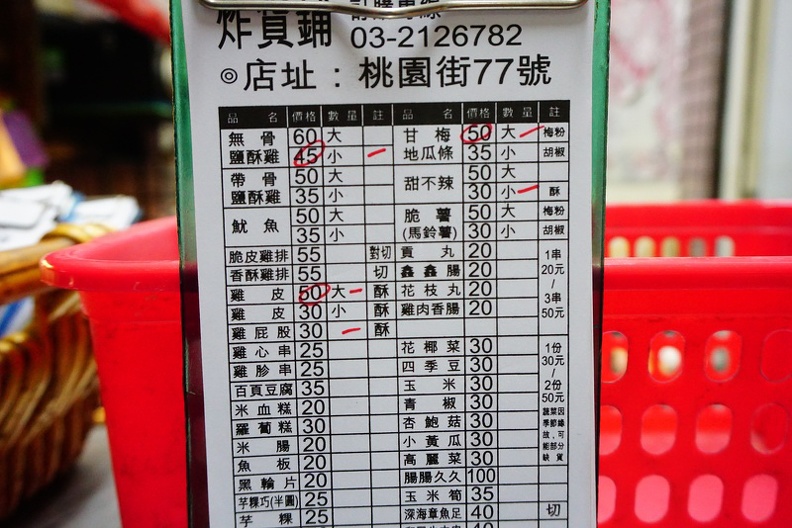 炸貨鋪
03-2126782
◎店址：桃園街77號
品 名 價格 數量 註 品 名 價格 數量 註
無骨鹽酥雞 60 大
45 小
帶骨鹽酥雞 50 大
35 小
魷魚 50 大
35 小
脆皮雞排 55 對切
香酥雞排 55 切
雞皮 50 大 酥
雞皮 30 小 酥
雞屁股 30 酥
雞心串 25
雞胗串 25
百頁豆腐 35
米血糕 20
蘿蔔糕 30
米腸 20
魚板 20
黑輪片 20
芋粿巧(半圓) 25
芋粿 25
甘梅地瓜條 50 大 梅粉
35 小 胡椒
甜不辣 50 大
30 小 酥
脆薯(馬鈴薯) 50 大 梅粉
30 小 胡椒
貢丸 20
鑫鑫腸 20
花枝丸 20
雞肉香腸 20
1串20元/3串50元
花椰菜 30
四季豆 30
玉米 30
青椒 30
杏鮑菇 30
小黃瓜 30
高麗菜 30
1份30元/2份50元
蔬菜因季節緣故，可能部分缺貨
腸腸久久 100
玉米筍 35
深海章魚足 40 切